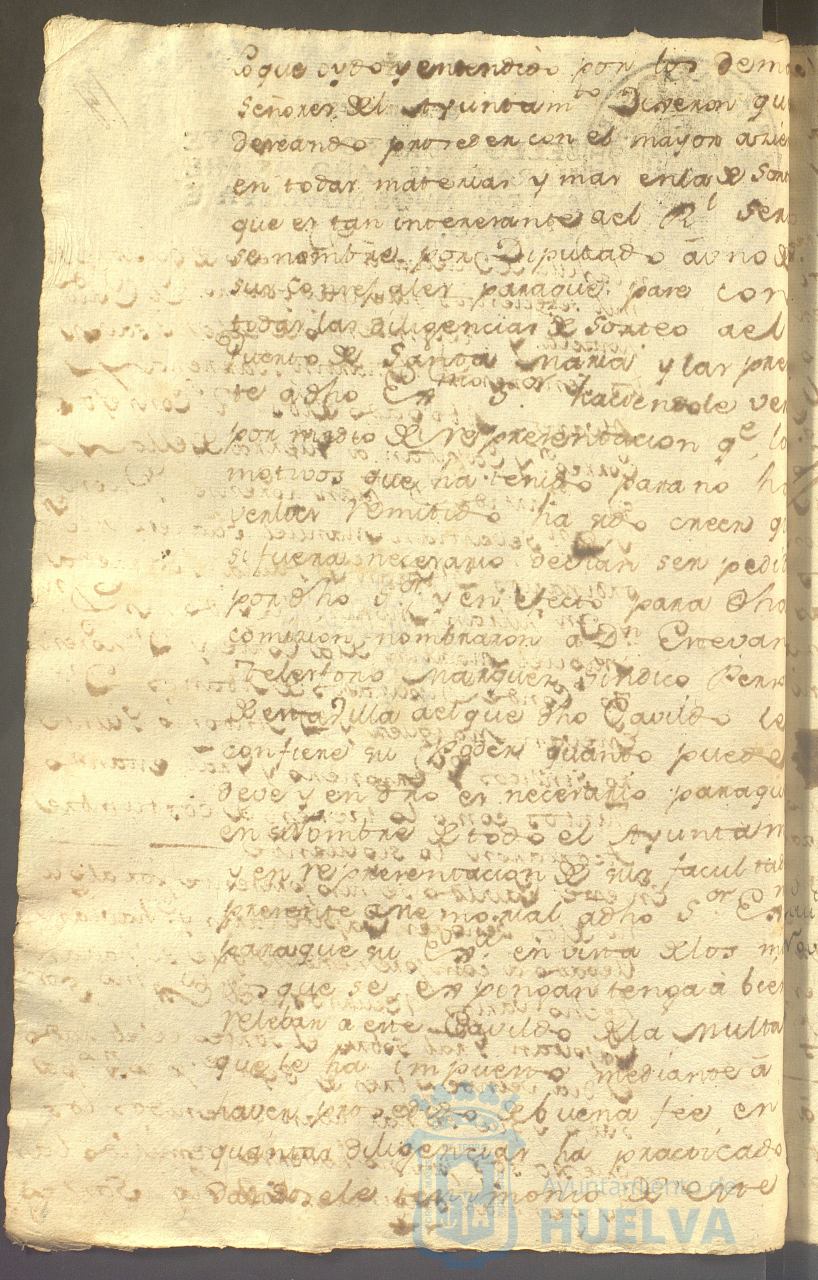 Loque oydo y entendido por los dema
Señores del Ayuntam.to Dixeron qu
deseando proseder con el mayor asier
en todas materias y mas en la de Sort
que es tan interesante ael R.l Ser
se nombre por Diputado á uno de
sus Capitulares paraque pase con
todas las diligencias de Sorteo ael
Puerto de Santa Maria y las pre
te adho Ex.mo S.or haciendole ver
por medio de representacion q.e lo
motivos que ha tenido para no ha
verlas remitido ha sido creer q
si fuera necesario devian ser pedi
por dho S.or y en efecto para dha
comision nombraron a D.n Estevan
Telesforo Marquez Sindico Perso
de esta Villa ael que dho Cavildo le
confiere su Poder quanto puede
deve y en dro es necesario paraqu
en su Nombre de todo el Ayuntam
y en representacion de sus facultad
presente este memorial adho S.or Ex
paraque su Ex.a en vista de los m
vos que se expongan tenga á bien
relebar a este Cavildo de la Multa
que le ha impuesto mediante á
haver prosedido de buena fee en
quantas diligencias ha practicado
dandosele testimonio de este
Ayuntamiento de
HUELVA